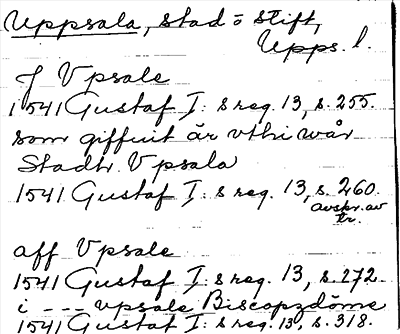 Uppsala, stad o stift,
Upps. l.
J Vpsale
1541 Gustaf I: s reg. 13, s. 255.
som giffuit är vthi wår
Stadh Vpsala
1541 Gustaf I: s reg. 13, s. 260.
avskr. av
tr.
aff Vpsale
1541 Gustaf I: s reg. 13, s. 272
i --- vpsale Biscopzdöme
1541 Gustaf I: s reg. 13, s. 318.